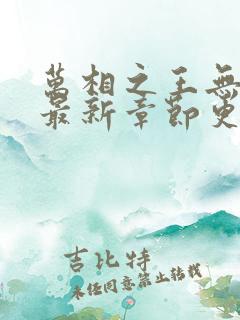 萬相之王無
最新章節更
吉比特
未經同意禁止轉載